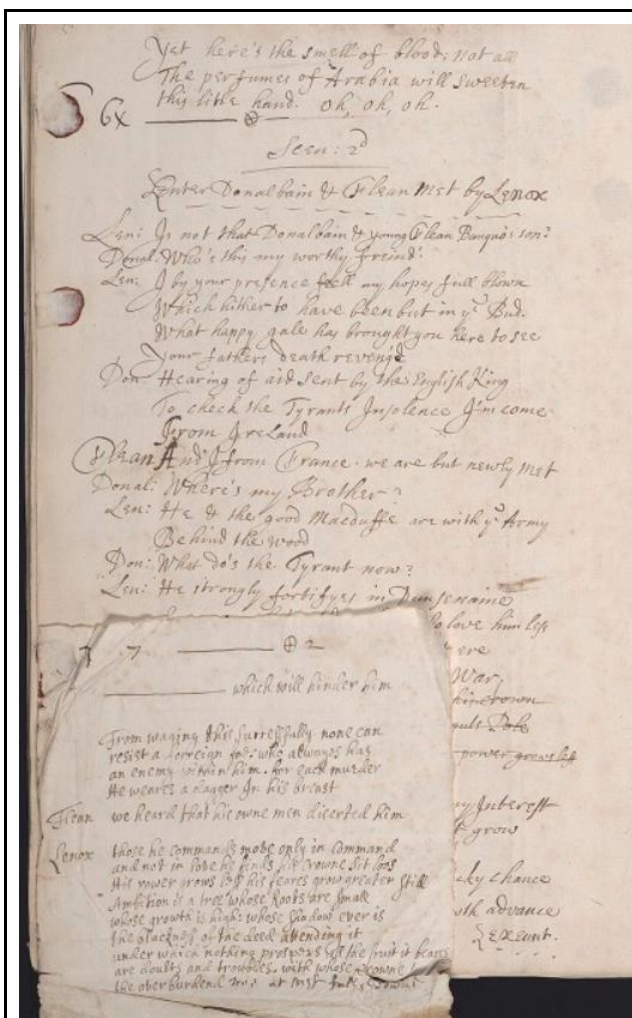 Yet here's the smell of blood; not all
The perfumes of Arabia will sweeten
this little hand. oh, oh, oh.
6x
Scen: 2d
Enter Donalbain & Flean Met by Lenox
Len: Is not that Donalbain & young Flean Banquo's son?
Donal: Who's this my worthy freind?
Len: I by your presence feell my hopes full blown
Which hither to have been but in ye Bud.
What happy gale has brought you here to see
Your fathers death reveng'd
Don: Hearing of aid sent by the English King
To check the Tyrants Insolence I'm come
From Ireland
Flean And I from France. we are but newly met
Donal: Where's my Brother?
Len: He & the good Macduffe are with ye Army
Behind the wood
Don: What do's the Tyrant now?
Len: He strongly fortifyes in Dunsenaine
love him less
ere
War,
his crown
Pole
power grows less
my Interest
grow
cky chance
advance
Exeunt.
7 7. 2
which will hinder him
From waging this successfully none can
resist a forreign foe: who alwayes has
an enemy within him. for each murder
He weares a dagger In his breast
Flean we heard that his owne men diserted him
Lenox those he commands move only in command
and not in love he finds his crowne sit loos
His power grows less his feares grow greater still
Ambition is a tree whose Roots are small
whose growth is high: whose shadow ever is
the blackness of the deed attending it
under which nothing prospers all the fruit it beares
are doubts and troubles. with whose crowne
the overburdend tree at last